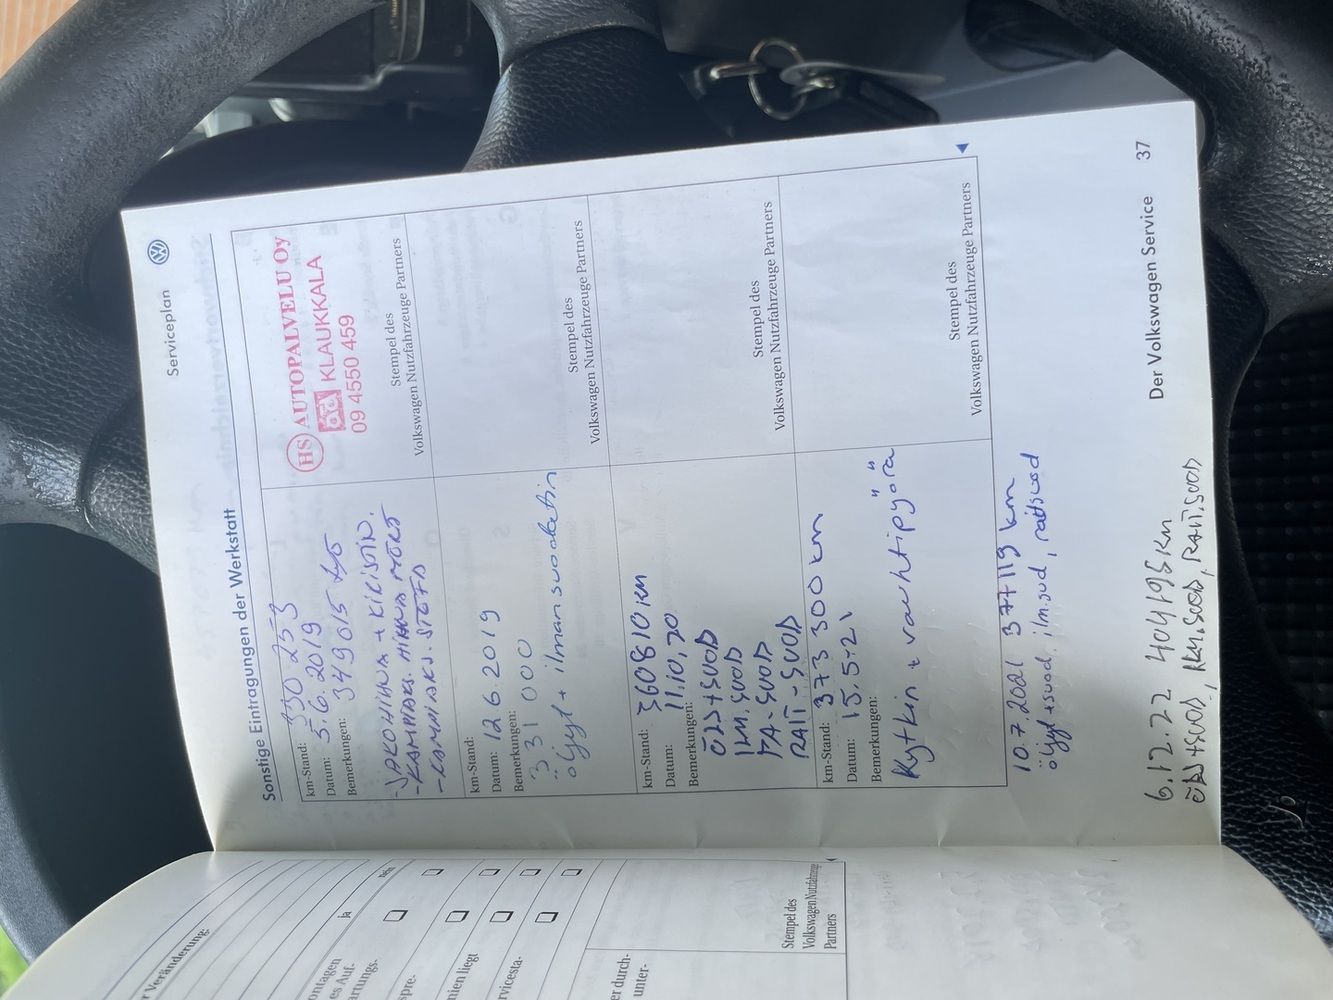 Serviceplan
Sonstige Eintragungen der Werkstatt
km-Stand: 330 253
Datum: 5.6.2019
Bemerkungen: 349015
-JAKOHIHNA + KIRISTIN.
-KAMPIAKS. HIHNAPYÖRÄ
-KAMPIAKS. STEFA
HS AUTOPALVELU Oy
KLAUKKALA
09 4550 459
Stempel des
Volkswagen Nutzfahrzeuge Partners
km-Stand:
Datum: 12 6. 2019
Bemerkungen:
331 000
öljyt + ilmansuodatin
Stempel des
Volkswagen Nutzfahrzeuge Partners
km-Stand: 360810 KM
Datum: 11.10.20
Bemerkungen:
ÖLJ+SUOD
ILM.SUOD
PA-SUOD
RAIT-SUOD
Stempel des
Volkswagen Nutzfahrzeuge Partners
km-Stand: 373 300 km
Datum: 15.5.21
Bemerkungen:
Kytkin + vauhtipyörä
Stempel des
Volkswagen Nutzfahrzeuge Partners
10.7.2021 377119 km
öljyt+suod, ilm.suod, raitsuod
6.12.22 404196 Km
ÖLJ+SUOD, ILM.SUOD, RAIT.SUOD
Der Volkswagen Service 37
r Veränderung:
ja
nein
ontagen
es Auf-
artungs.
spre-
nien liegt
rvicesta-
er durch-
unter-
Stempel des
Volkswagen Nutzfahrzeuge
Partners